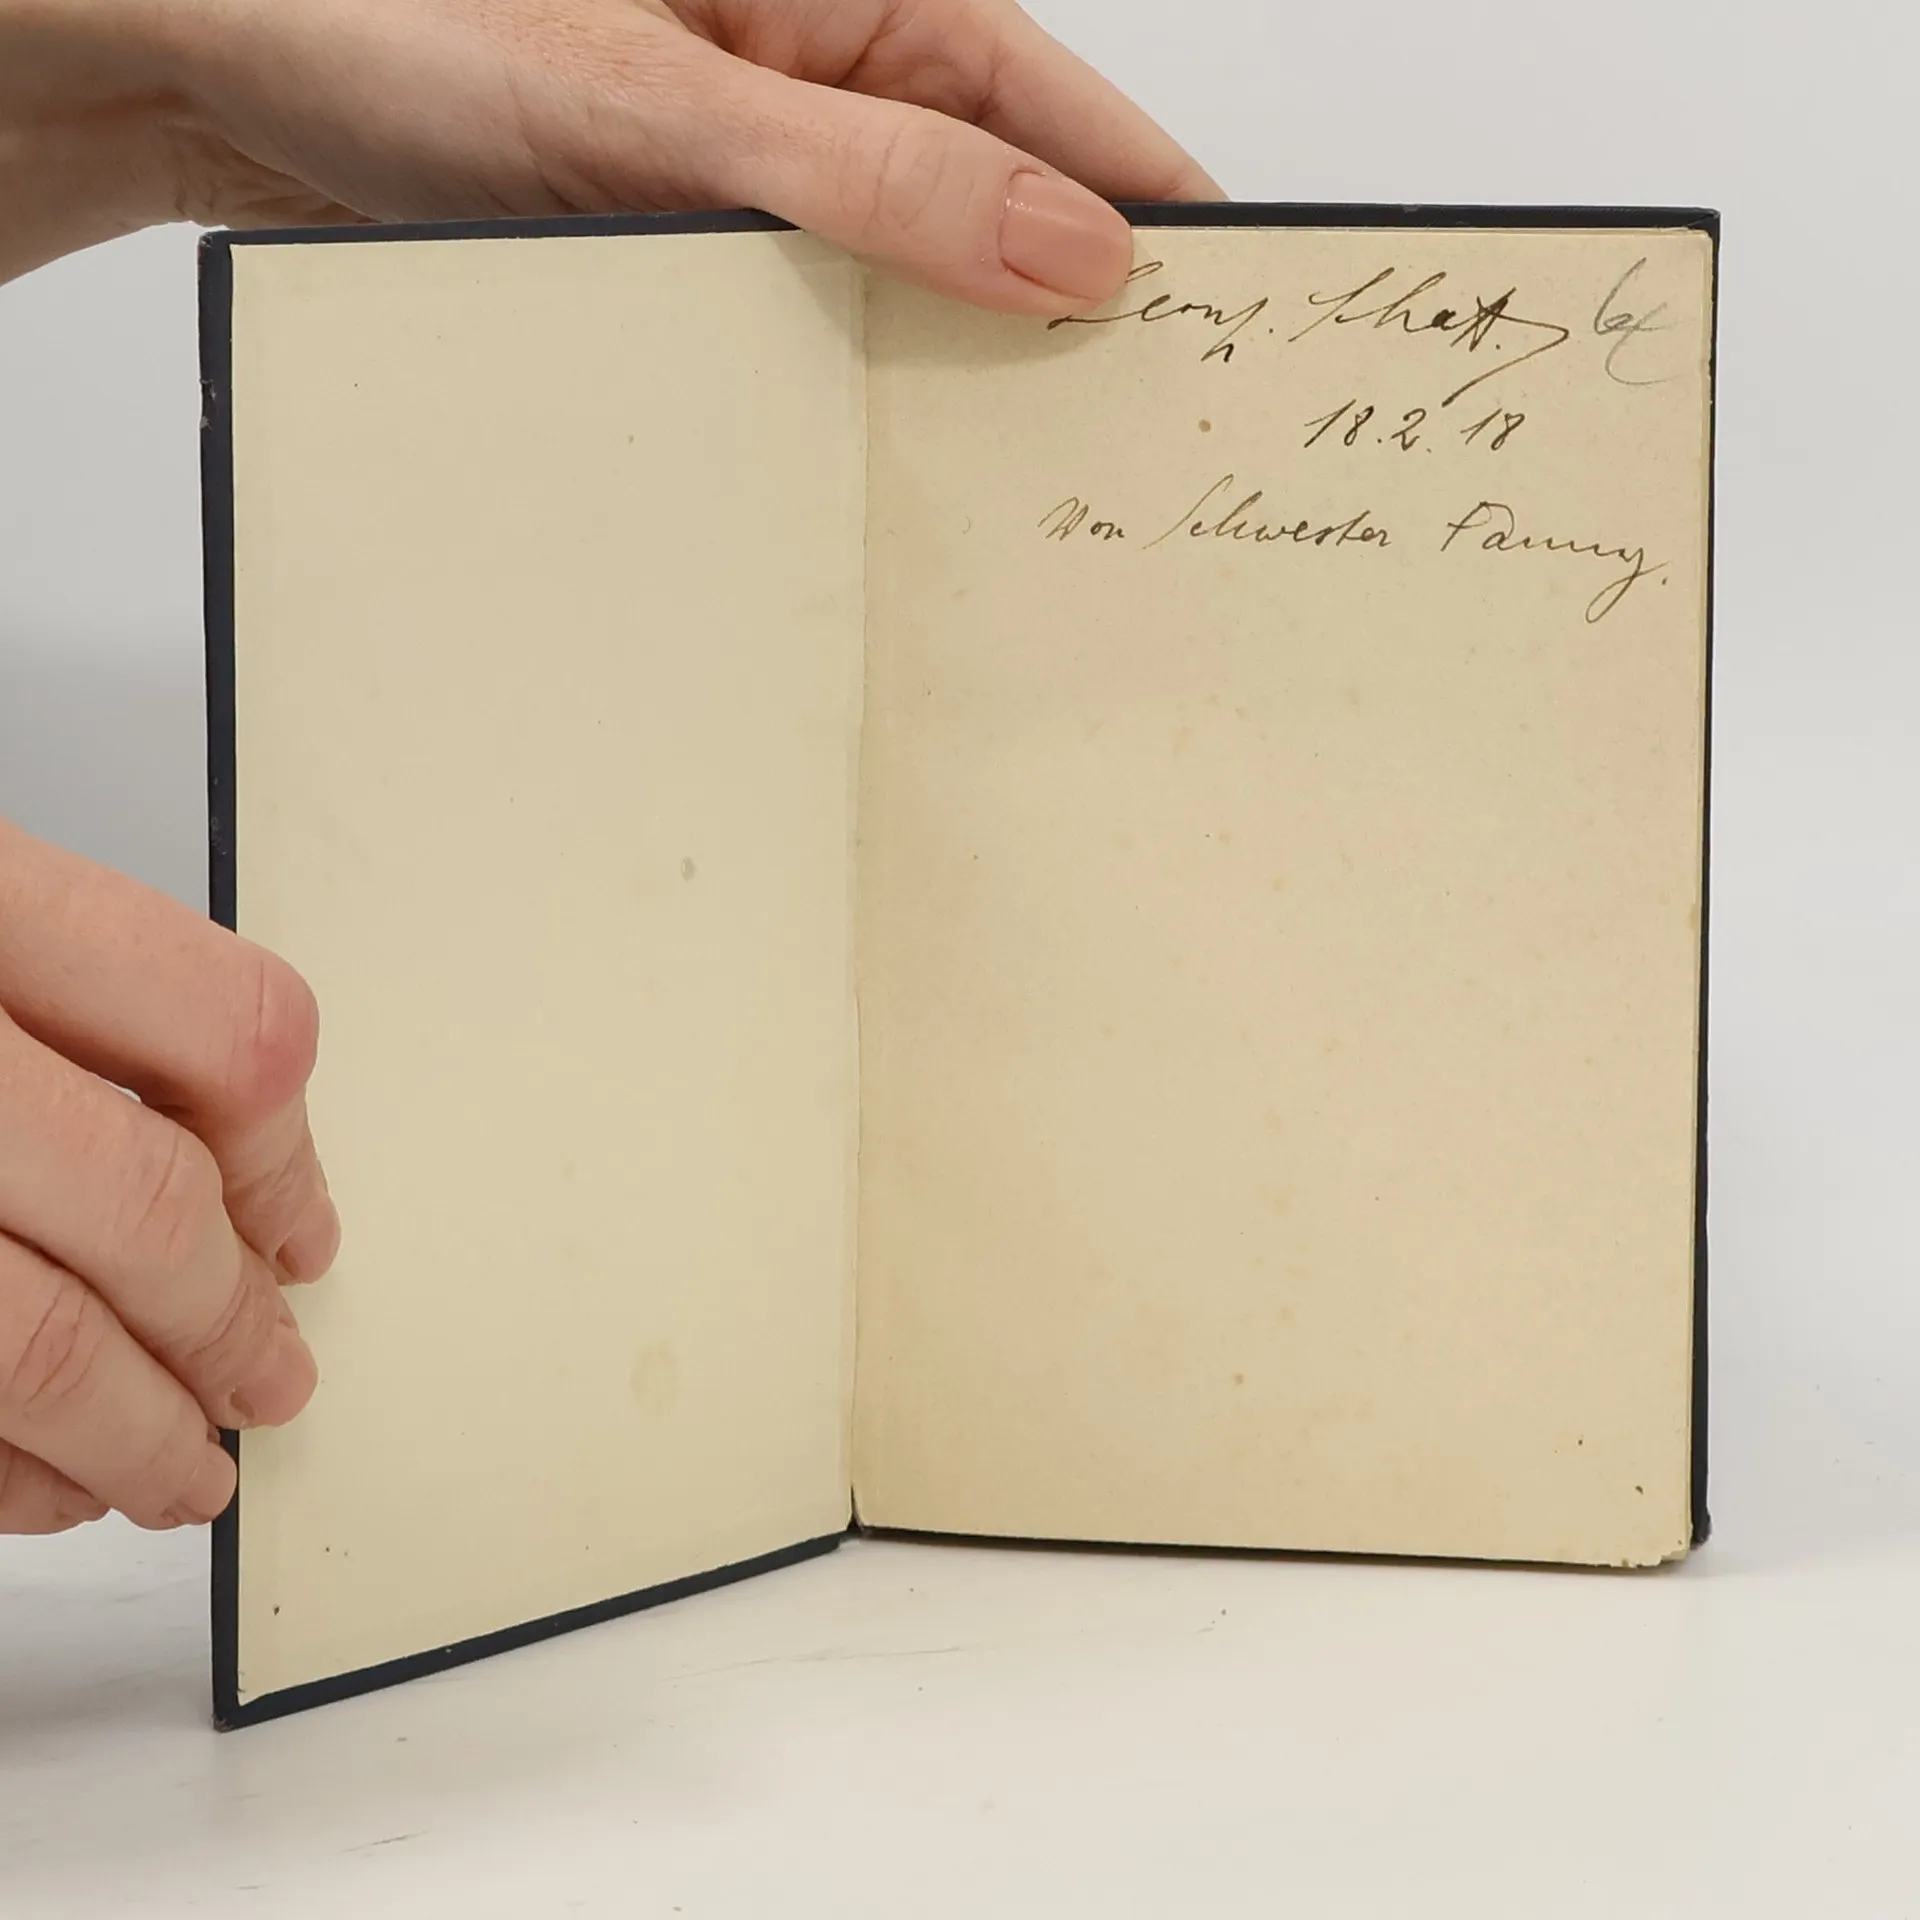 Schatt.
18.2.18
Von Schwester Fanny.